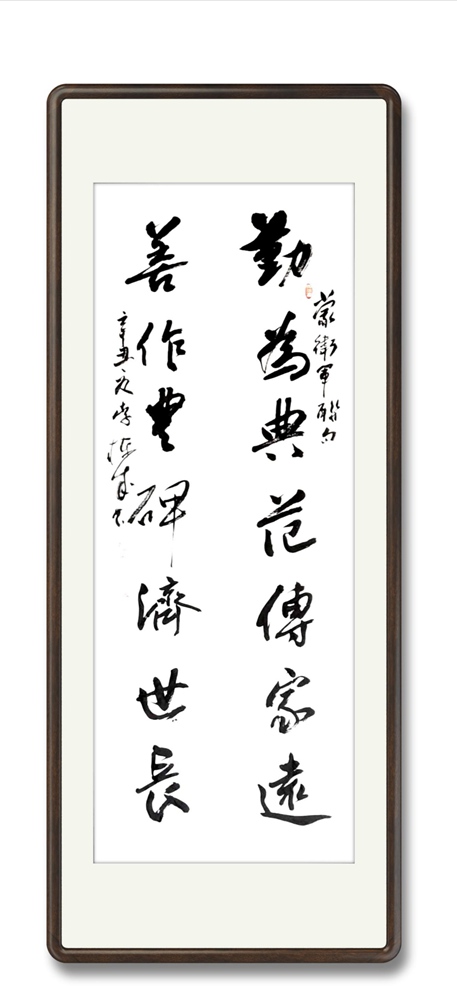 勤為典范傳家遠
蒙衛軍聯句
善作豐碑濟世長
辛丑